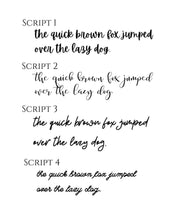 Script 1
the quick brown fox jumped
over the lazy dog.
Script 2
the quick brown fox jumped
over the lazy dog.
Script 3
the quick brown fox jumped
over the lazy dog.
Script 4
the quick brown fox jumped
over the lazy dog.